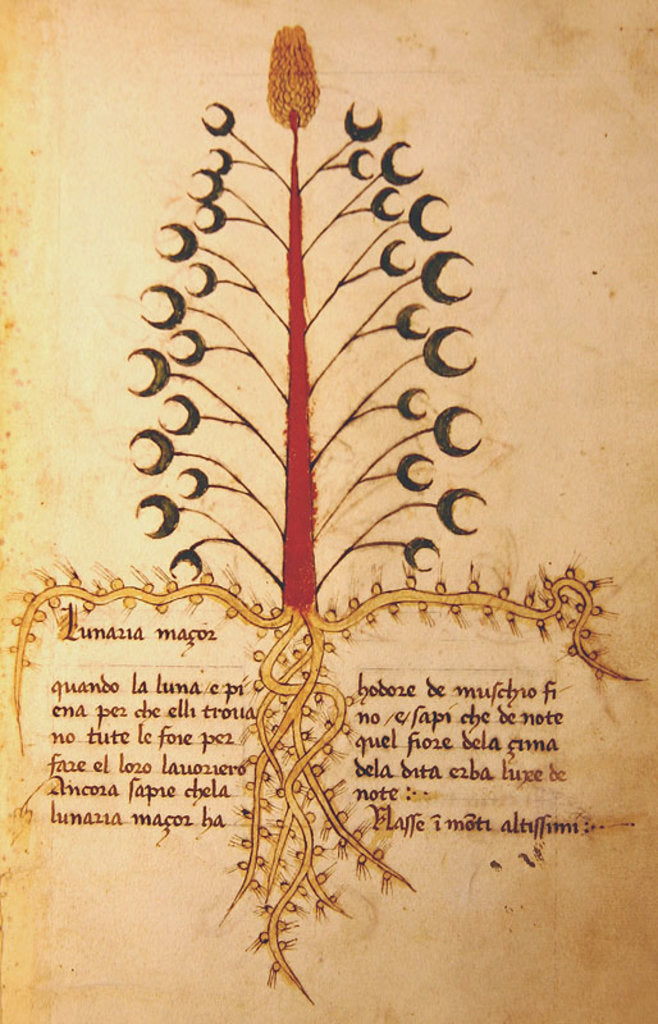 Lunaria maçor
quando la luna e pi
ena per che elli troua
no tute le foie per
fare el loro lauoriero
Ancora sapie chela
lunaria maçor ha
hodore de muschio fi
no e sapi che de note
quel fiore dela çima
dela dita erba luxe de
note :··
Nasse ī mōti altissimi :··